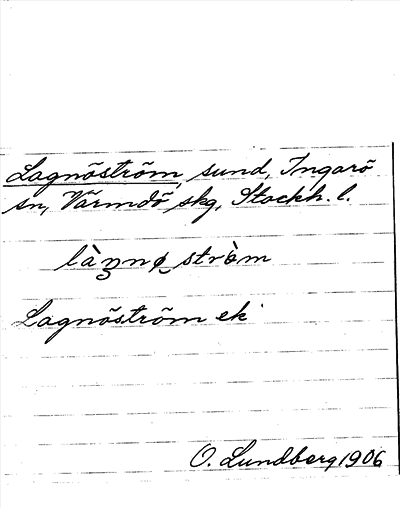 Lagnöström, sund, Ingarö
sn, Värmdö skg, Stockh. l.
làŋnø strö̀m
Lagnöström ek
O. Lundberg 1906